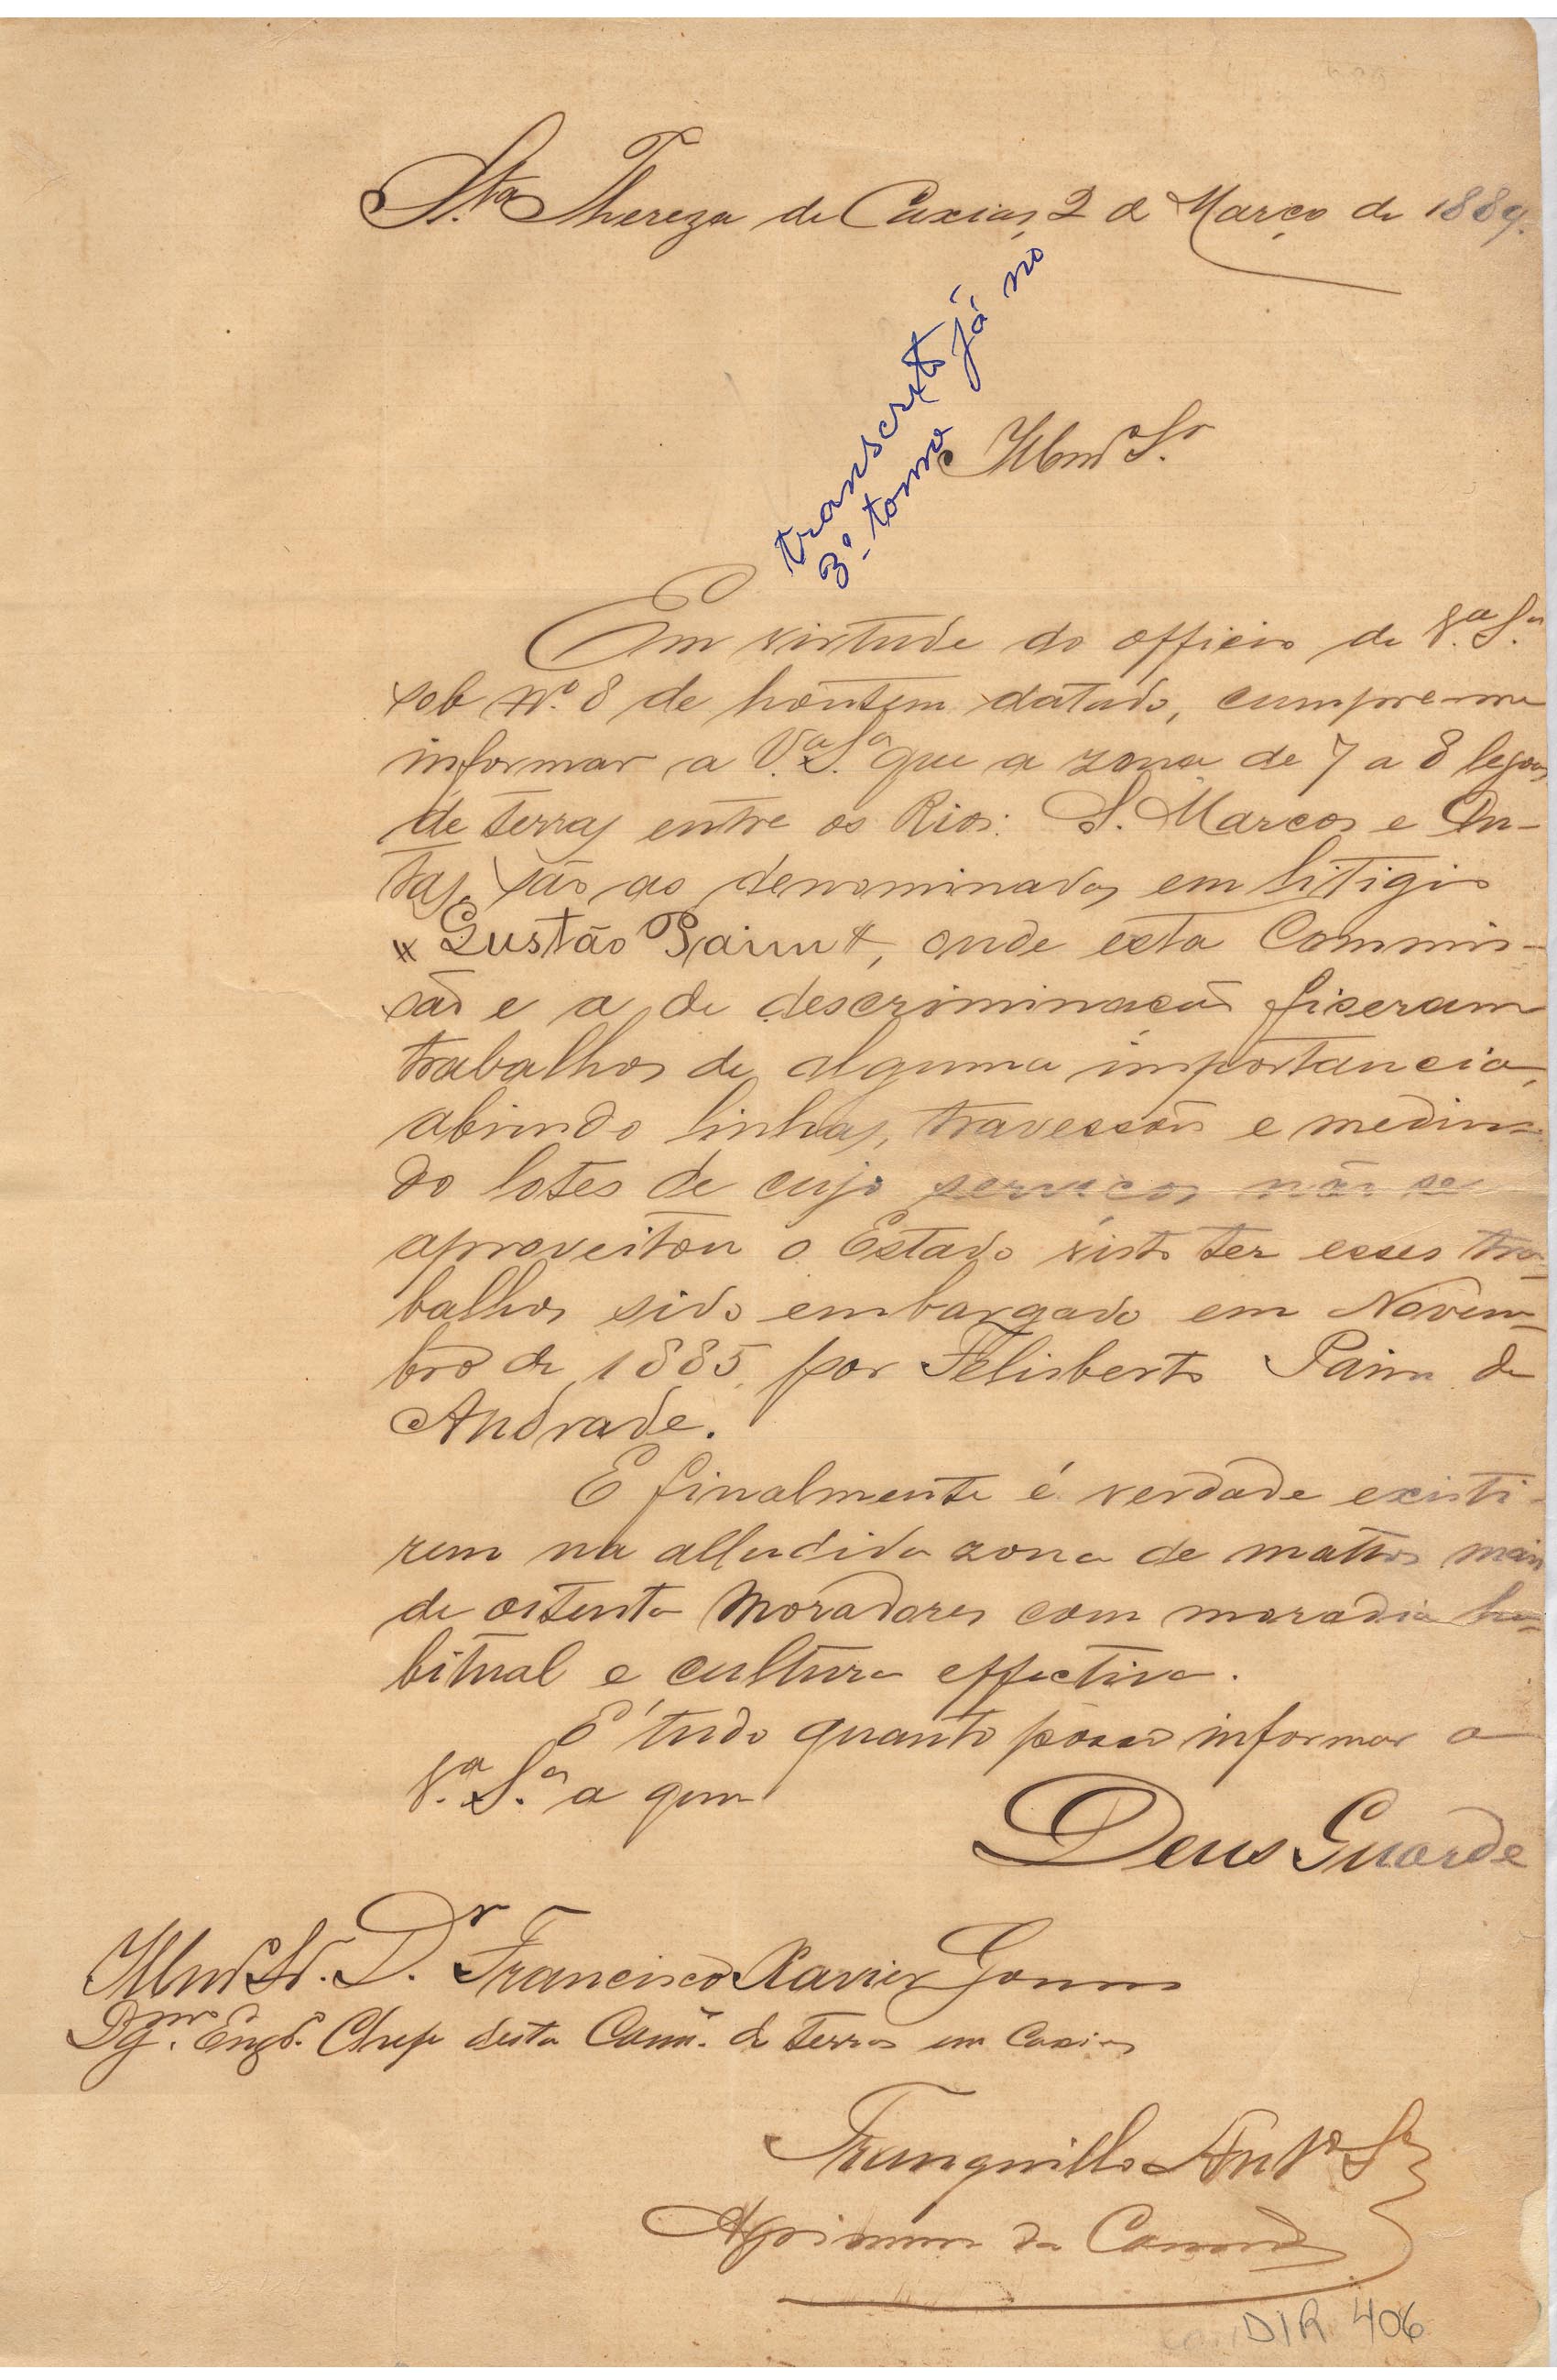 Sta. Thereza de Caxias, 2 de Março de 1889.
transcrito já no
3º tomo
Illmo Sr.
Em virtude do officio de V.a S.a
sob Nº 8 de hontem datado, cumpre-me
informar a V.a S.a que a zona de 7 a 8 legoas
de terras entre os Rios: S. Marcos e An-
tas, são as denominadas em litigio
"Gustão Paim", onde esta Commis-
são e a de descriminação fiseram
trabalhos de alguma importancia,
abrindo linhas, travessões e medin-
do lotes de cujo serviços não se
aproveitou o Estado visto ter esses tra-
balhos sido embargado em Novem-
bro de 1885, por Felisberto Paim de
Andrade.
E finalmente é verdade existi-
rem na alludida zona de mattos mais
de oitenta moradores com moradia ha-
bitual e cultura effectiva.
É tudo quanto posso informar a
V.a S.a a quem
Deus Guarde
Illmo Sr. Dr. Francisco Xavier Gomes
Dgmo. Engo. Chefe desta Comm. de terras em Caxias
Tranquillo Anto
da Commão
DIR 406